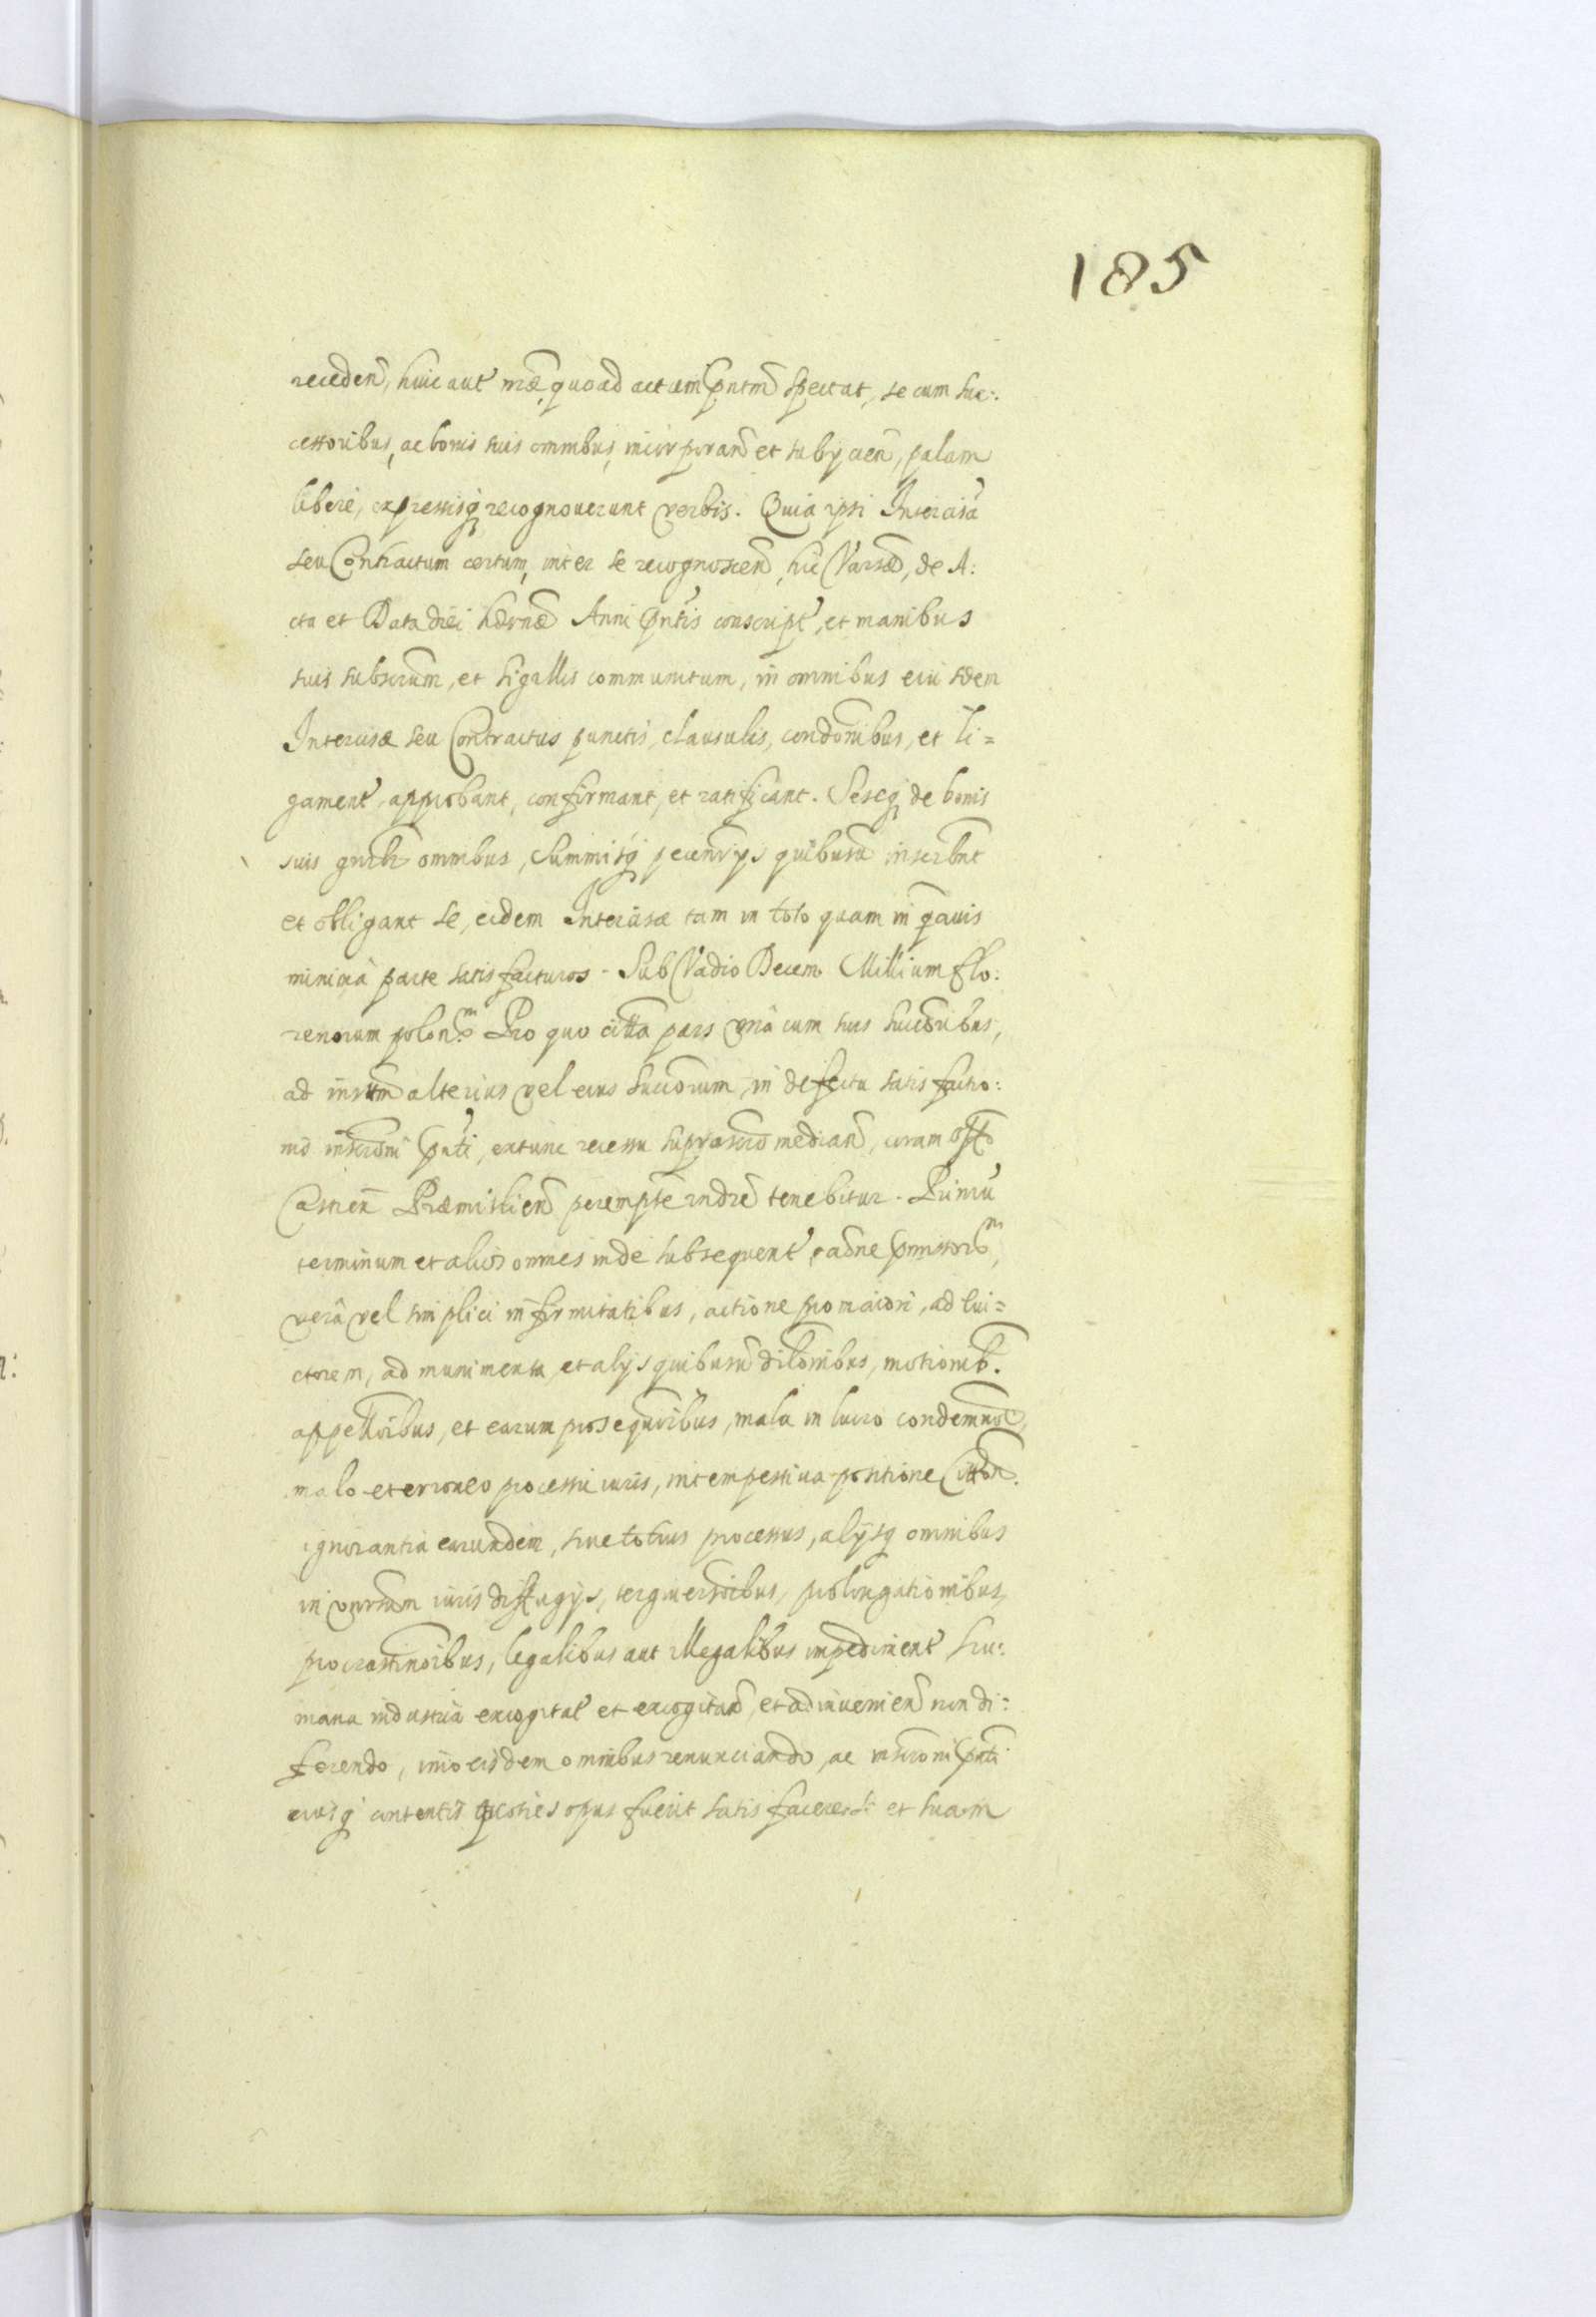 185
receden, huic aut mæ, quoad actum pntm spectat, se cum suc:
cessoribus, ac bonis suis omnibus, incorporan et subycien, palam
libere, expressisq recognouerunt verbis. Quia ipsi Intercisa
seu Contractum certum, inter se recognoscen, hic Varsae, de A:
cta et Data diei hodrnae Anni pntis conscript, et manibus
suis subscrum, et sigillis communitum, in omnibus eius dem
Intercisæ seu Contractus punctis, clausulis, condonibus, et li=
gament, approbant, confirmant, et ratificant. Seseq de bonis
suis gnrlr omnibus, Summisq pecunrys quibusu inscrbnt
et obligant se, eidem Intercisæ tam in toto quam in quavis
minima parte satisfacturos. Sub Vadio Decem Millium flo:
renorum polon.m Pro quo citta pars vna cum suis succoribus,
ad instm alterius vel eius succorum, in defectu satisfactio:
nis inscroni pnti, extunc recessu suprascro median, coram offo
Castren Præmislien perempte rndre tenebitur. Primu
terminum et alios omnes inde subsequent, eadne pmissor m,
vera vel simplici infirmitatibus, actione pro maiori, ad lui=
ctorem, ad munimenta, et alys quibusu dilonibus, motionib.
appellonibus, et earum prosequonibus, mala in lucro condemnoe,
malo et erroneo processu iuris, intempestiua positione Citton.
ignorantia earundem, siue totius processus, alysq omnibus
in vnrsum iuris diffugys, tergiuersonibus, prolongationibus,
procrastinonibus, legalibus aut illegalibus impediment hu:
mana industria excogitat et excogitan, et adinuenien non di:
fferendo, imo eisdem omnibus renunciando, ac inscroni pnti
eiusq contentis quoties opus fuerit satisfacere et suam